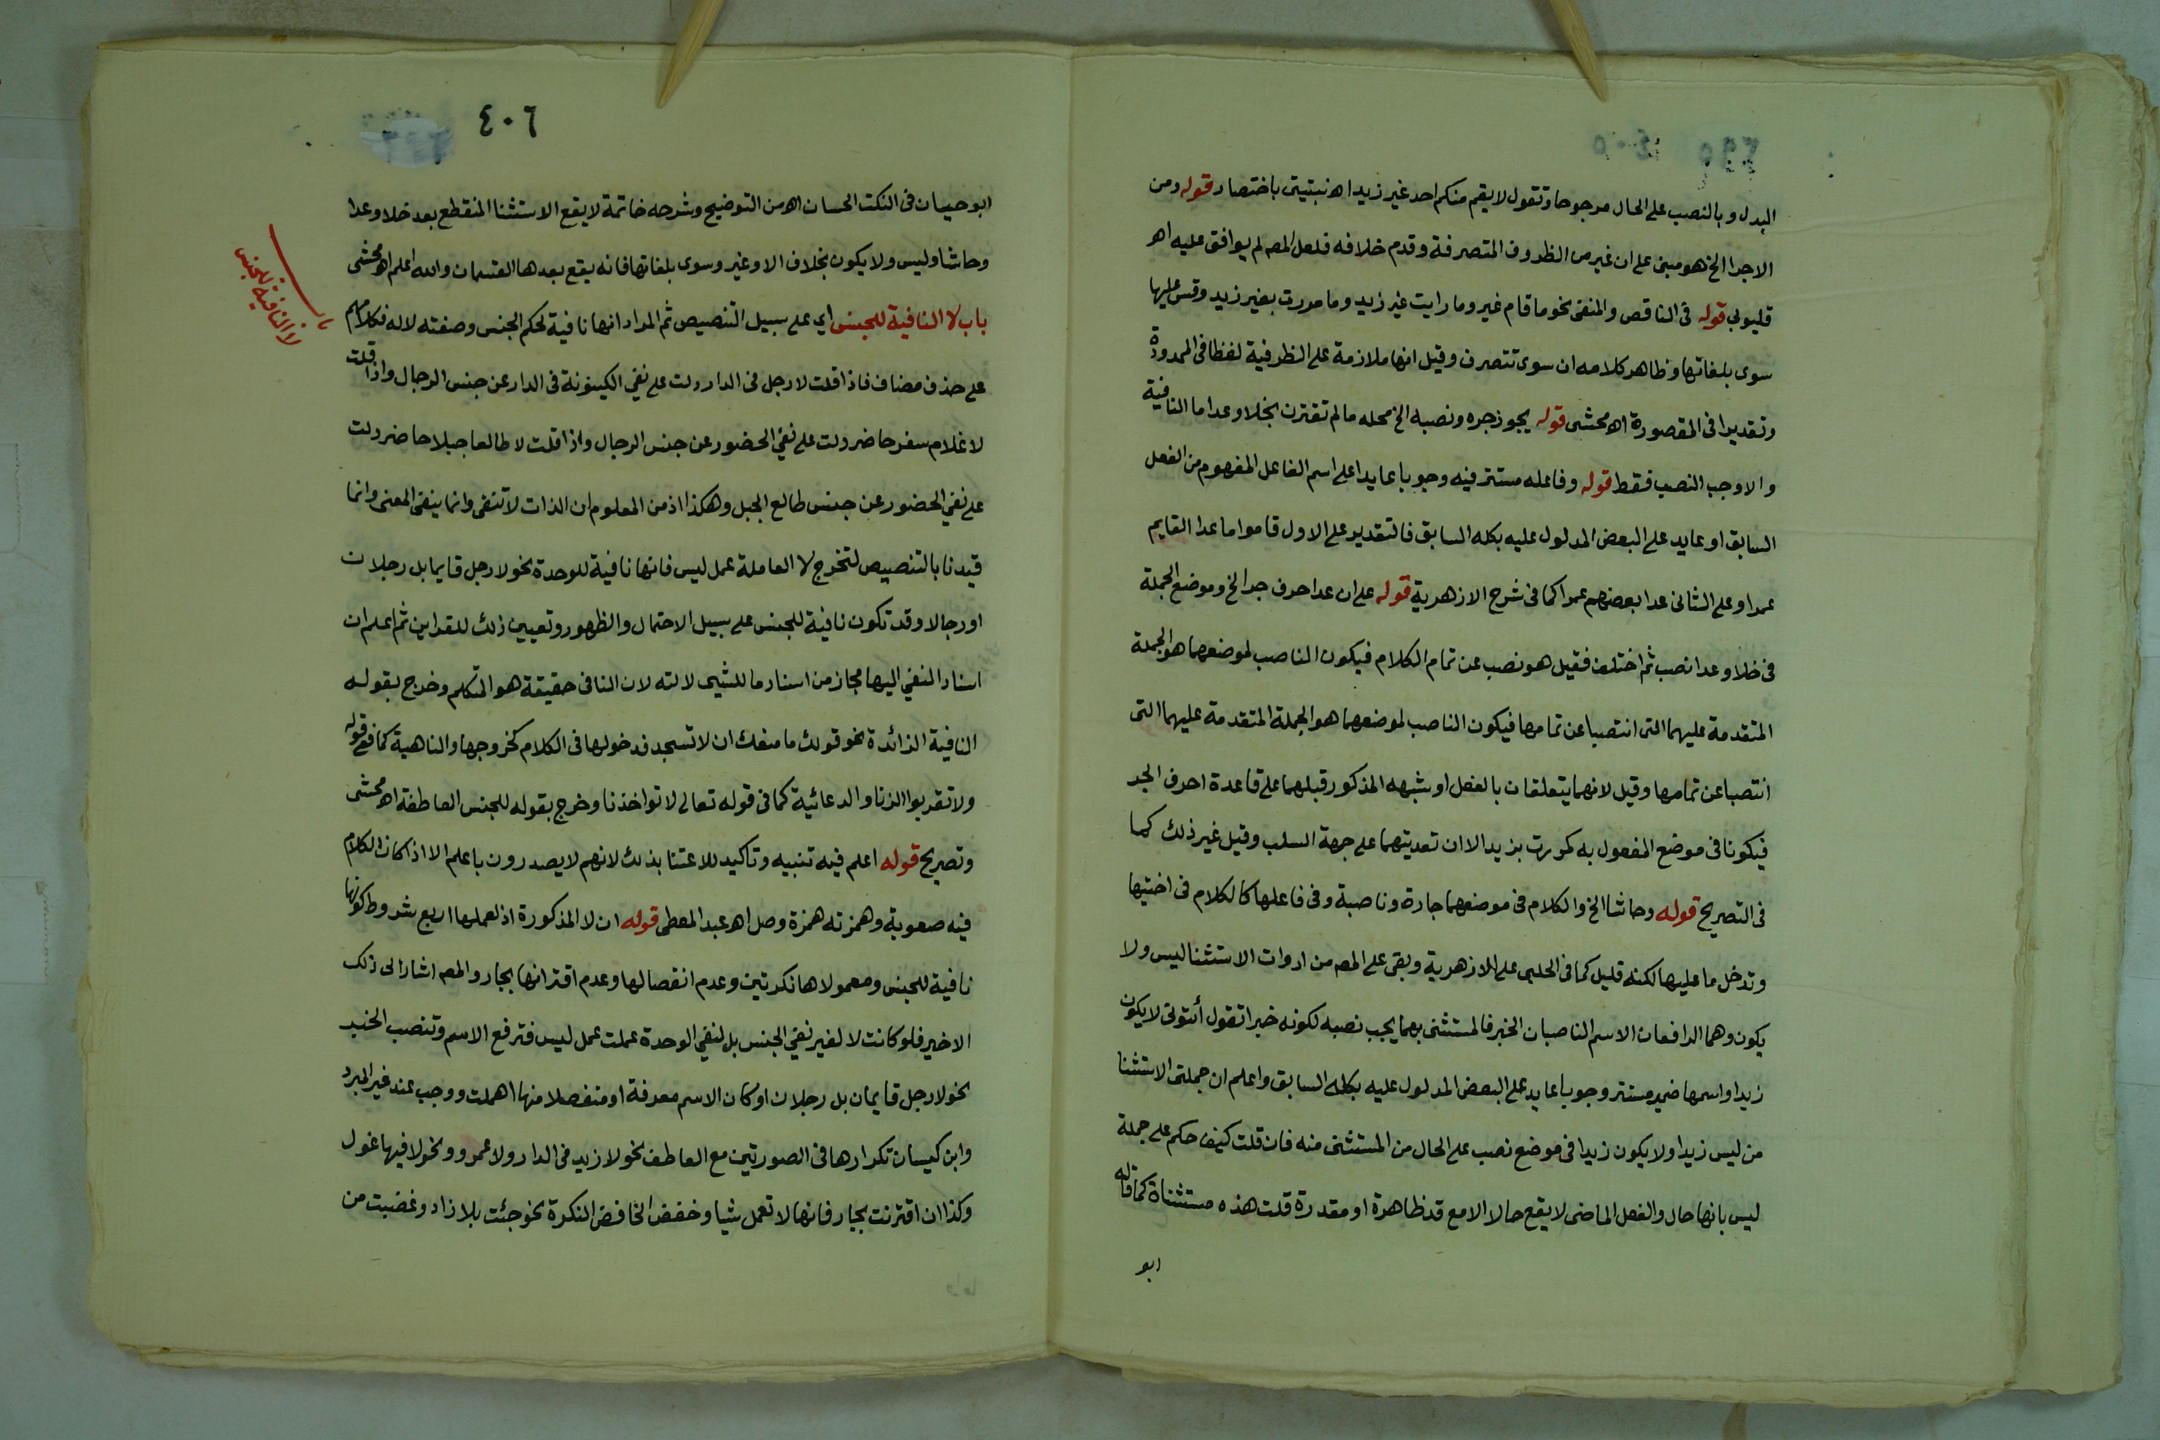 البدل وبالنصب على الحال مرجوحا وتقول لا يقم منكم احد غير زيدا اه نبتيتى باختصار قوله ومن
الاجرا الخ هو مبنى على ان غير من الظروف المتصرفة وقدم خلافه فلعل المص لم يوافق عليه اه
قليوبى قوله فى الناقص والمنفى نحو ما قام غير وما رايت غير زيد وما مررت بغير زيد وقس عليها
سوى بلغاتها وظاهر كلامه ان سوى تتصرف وقيل انها ملازمة على الظرفية لفظا فى الممدودة
وتقديرا فى المقصورة اه محشى قوله يجوز جره ونصبه الخ محله ما لم تقترن بخلا وعدا ما النافية
والا وجب النصب فقط قوله وفاعله مستتر فيه وجوبا عايدا على اسم الفاعل المفهوم من الفعل
السابق او عايد على البعض المدلول عليه بكله السابق فالتقدير على الاول قاموا ما عدا القايم
عمرا وعلى الثانى عدا بعضهم عمرا كما فى شرح الازهرية قوله على ان عدا حرف جر الخ وموضع الجملة
فى خلا وعدا نصب ثم اختلف فقيل هو نصب عن تمام الكلام فيكون الناصب لموضعهما هو الجملة
المتقدمة عليهما التى انتصبا عن تمامها فيكون الناصب لموضعهما هو الجملة المتقدمة عليهما التى
انتصبا عن تمامها وقيل لانهما يتعلقان بالفعل او شبهه المذكور قبلهما على قاعدة احرف الجر
فيكونا فى موضع المفعول به كمررت بزيد الا ان تعديتهما على جهة السلب وقيل غير ذلك كما
فى التصريح قوله وحاشا الخ والكلام فى موضعهما جارة وناصبة وفى فاعلها كالكلام فى اختيها
وتدخل ما عليها لكنه قليل كما فى الحلبى على الازهرية وبقى على المص من ادوات الاستثنا ليس ولا
يكون وهما الرافعان الاسم الناصبان الخبر فالمستثنى بهما يجب نصبه لكونه خبرا تقول أتونى لا يكون
زيدا واسمها ضمير مستتر وجوبا عايد على البعض المدلول عليه بكله السابق واعلم ان جملتى الاستثنا
من ليس زيدا ولا يكون زيدا فى موضع نصب على الحال من المستثنى منه فان قلت كيف حكم على جملة
ليس بانها حال والفعل الماضى لا يقع حالا الا مع قد ظاهرة او مقدرة قلت هذه مستثناة كما قاله
ابو
٤٠٦
ابو حيان فى النكت الحسان اه من التوضيح وشرحه خاتمة لا يقع الاستثنا المنقطع بعد خلا وعدا
وحاشا وليس ولا يكون بخلاف الا وغير وسوى بلغاتها فانه يقع بعدها القسمان والله اعلم اه محشى
باب لا النافية للجنس اي على سبيل التنصيص ثم المراد انها نافية لحكم الجنس وصفته لا له فكلامهم
على حذف مضاف فاذا قلت لا رجل فى الدار دلت على نفي الكينونة فى الدار عن جنس الرجال واذا قلت
لا غلام سفر حاضر دلت على نفي الحضور عن جنس الرجال واذا قلت لا طالعا جبلا حاضر دلت
على نفي الحضور عن جنس طالع الجبل وهكذا اذ من المعلوم ان الذات لا تنفى وانما ينفى المعنى وانما
قيدنا بالتنصيص لتخرج لا العاملة عمل ليس فانها نافية للوحدة نحو لا رجل قايما بل رجلان
او رجالا وقد تكون نافية للجنس على سبيل الاحتمال والظهور وتعيين ذلك للقراين ثم اعلم ان
اسناد النفي اليها مجاز من اسناد ما للشيى لالته لان النافى حقيقة هو المتكلم وخرج بقوله
النافية الزائدة نحو قولك ما منعك ان لا تسجد فدخولها فى الكلام كخروجها والناهية كما فى قوله
ولا تقربوا الزنا والدعائية كما فى قوله تعالى لا تواخذنا وخرج بقوله للجنس العاطفة اه محشى
وتصريح قوله اعلم فيه تنبيه وتاكيد للاعتنا بذلك لانهم لا يصدرون باعلم الا اذا كان الكلام
فيه صعوبة وهمزته همزة وصل اه عبد المعطى قوله ان لا المذكورة اذ لعملها اربع شروط كونها
نافية للجنس ومعمولاها نكرتين وعدم انفصالها وعدم اقترانها بجار والمص اشار الى ذلك
الاخير فلو كانت لا لغير نفي الجنس بل لنفي الوحدة عملت عمل ليس فترفع الاسم وتنصب الخبر
نحو لا رجل قايمان بل رجلان او كان الاسم معرفة او منفصلا منها اهملت ووجب عند غير المبرد
وابن كيسان تكرارها فى الصورتين مع العاطف نحو لا زيد فى الدار ولا عمرو ونحو لا فيها غول
وكذا ان اقترنت بجار فانها لا تعمل شيا وخفض الخافض النكرة نحو جئت بلا زاد وغضبت من
باب
لا النافية للجنس